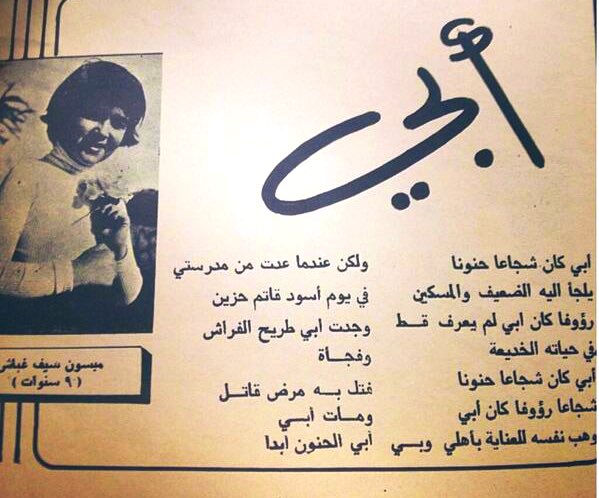 أبي
أبي كان شجاعا حنونا
يلجأ اليه الضعيف والمسكين
رؤوفا كان ابي لم يعرف قط
في حياته الخديعة
أبي كان شجاعا حنونا
شجاعا رؤوفا كان أبي
وهب نفسه للعناية بأهلي وبي
ولكن عندما عدت من مدرستي
في يوم أسود قاتم حزين
وجدت ابي طريح الفراش
وفجاة
فتل به مرض قاتل
ومات أبي
أبي الحنون ابدا
ميسون سيف
(٩ سنوات)